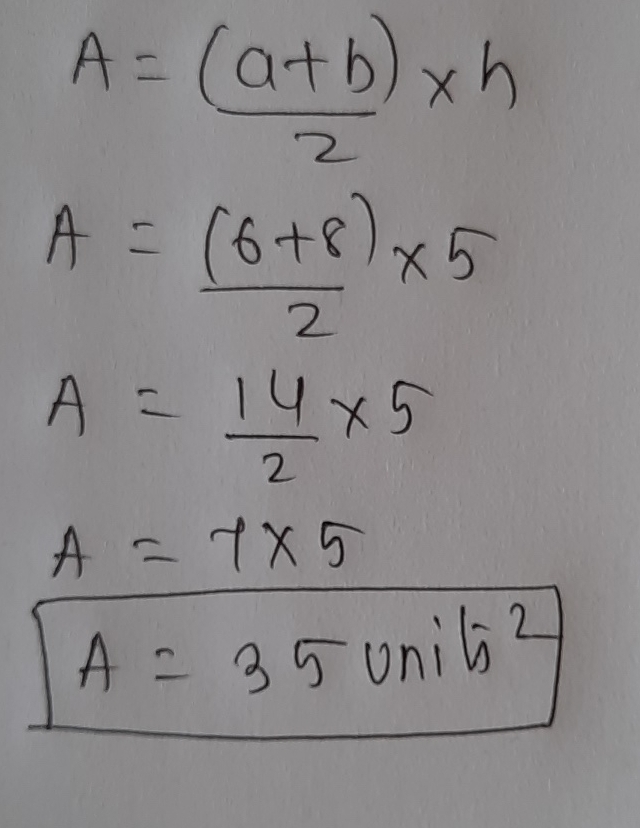 A = (a+b)/2 × h
A = (6+8)/2 × 5
A = 14/2 × 5
A = 7 × 5
A = 35 units²